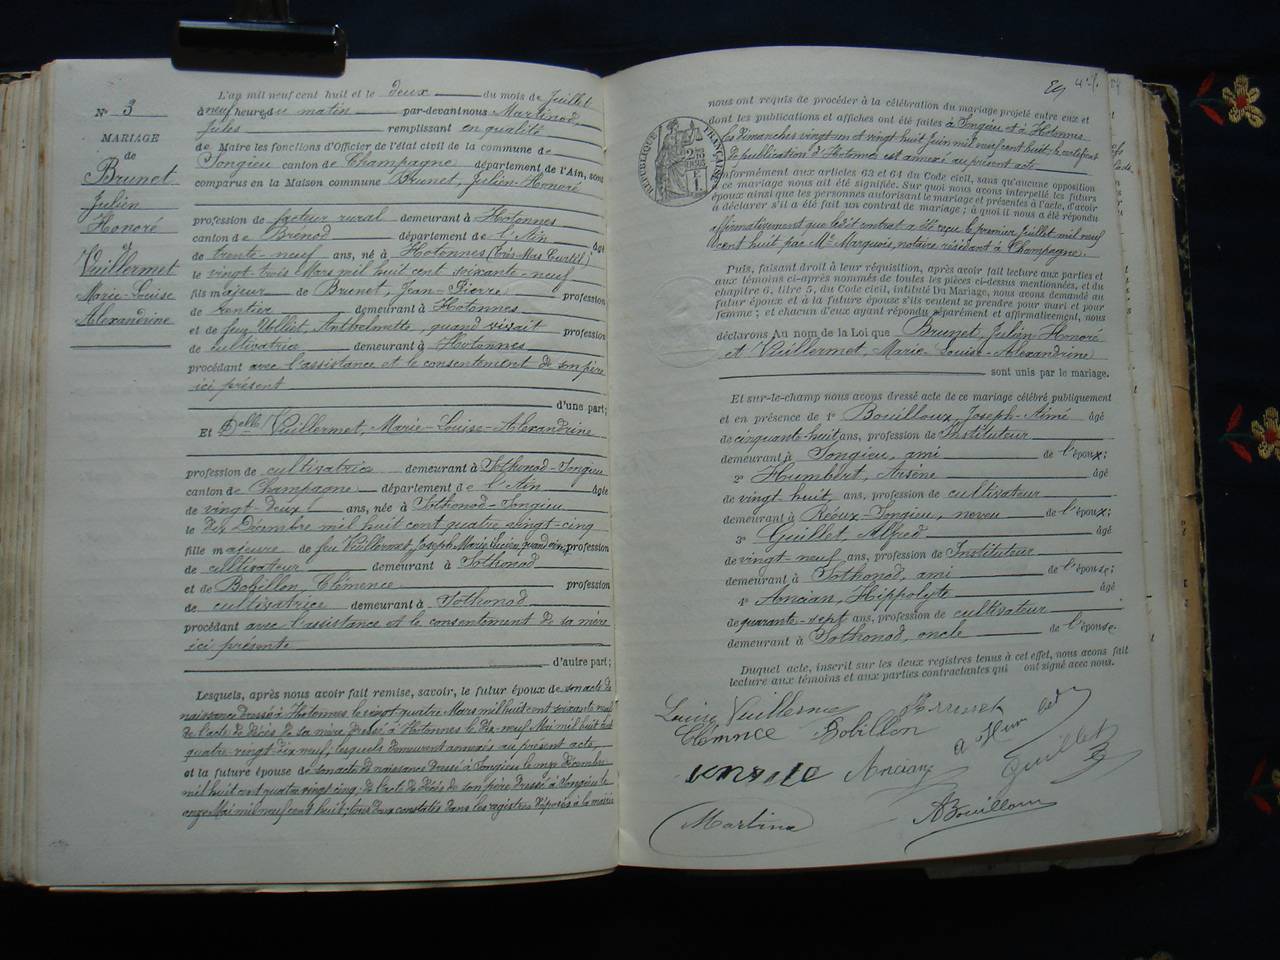 N° 3
MARIAGE
de
Brunet
Julien
Honoré
&
Vuillermet
Marie-Louise
Alexandrine
L'an mil neuf cent huit et le deux du mois de Juillet
à neuf heures du matin par-devant nous Martinod,
Jules remplissant en qualité
de Maire les fonctions d'Officier de l'état civil de la commune de
Songieu canton de Champagne, département de l'Ain, sont
comparus en la Maison commune Brunet, Julien-Honoré
profession de facteur rural demeurant à Hotonnes
canton de Brénod département de l'Ain âgé
de trente-neuf ans, né à Hotonnes
le vingt trois Mars mil huit cent soixante-neuf
fils majeur de Brunet, Jean-Pierre profession
de rentier demeurant à Hotonnes
et de feu Anthelmette, quand vivait profession
de cultivatrice demeurant à Hotonnes
procédant avec l'assistance et le consentement de son père
ici présent
d'une part;
Et Delle Vuillermet, Marie-Louise-Alexandrine
profession de cultivatrice demeurant à Sothonod-Songieu
canton de Champagne département de l'Ain âgée
de vingt-deux ans, née à Sothonod-Songieu
le dix Décembre mil huit cent quatre vingt-cinq
fille majeure de feu Vuillermet, Joseph-Marie quand vivait profession
de cultivateur demeurant à Sothonod
et de Bobillon, Clémence profession
de cultivatrice demeurant à Sothonod
procédant avec l'assistance et le consentement de sa mère
ici présente
d'autre part;
Lesquels, après nous avoir fait remise, savoir, le futur époux de son acte de
naissance dressé à Hotonnes le vingt quatre Mars mil huit cent soixante neuf
de l'acte de décès de sa mère dressé à Hotonnes le dix-neuf Mai mil huit cent
quatre-vingt-dix-neuf, lesquels demeurent annexés au présent acte,
et la future épouse de son acte de naissance dressé à Songieu le onze Décembre
mil huit cent quatre vingt cinq; de l'acte de décès de son père dressé à Songieu le
onze Mai mil neuf cent huit; tous deux constatés dans les registres déposés à la mairie
nous ont requis de procéder à la célébration du mariage projeté entre eux et
dont les publications et affiches ont été faites à Songieu et à Hotonnes
les dimanches vingt un et vingt huit Juin mil neuf cent huit; le certificat
de publication d'Hotonnes est annexé au présent acte
conformément aux articles 63 et 64 du Code civil, sans qu'aucune opposition
à ce mariage nous ait été signifiée. Sur quoi nous avons interpellé les futurs
époux ainsi que les personnes autorisant le mariage et présentes à l'acte, d'avoir
à déclarer s'il a été fait un contrat de mariage; à quoi il nous a été répondu
affirmativement que ledit contrat a été reçu le premier juillet mil neuf
cent huit par Me Marquois, notaire résidant à Champagne.
RÉPUBLIQUE FRANÇAISE
Puis, faisant droit à leur réquisition, après avoir fait lecture aux parties et
aux témoins ci-après nommés de toutes les pièces ci-dessus mentionnées, et du
chapitre 6, titre 5, du Code civil, intitulé Du Mariage, nous avons demandé au
futur époux et à la future épouse s'ils veulent se prendre pour mari et pour
femme; et chacun d'eux ayant répondu séparément et affirmativement, nous
déclarons Au nom de la Loi que Brunet, Julien-Honoré
et Vuillermet, Marie-Louise-Alexandrine
sont unis par le mariage.
Et sur-le-champ nous avons dressé acte de ce mariage célébré publiquement
et en présence de 1° Bouilloux, Joseph-Aimé âgé
de cinquante-huit ans, profession de Instituteur
demeurant à Songieu, ami de l'époux;
2° Humbert, Arsène âgé
de vingt-huit, ans, profession de cultivateur
demeurant à Réoux-Songieu, neveu de l'époux;
3° Guillet, Alfred âgé
de vingt-neuf ans, profession de Instituteur
demeurant à Sothonod, ami de l'épouse;
4° Ancian, Hippolyte âgé
de quarante-sept ans, profession de cultivateur
demeurant à Sothonod, oncle de l'épouse
Duquel acte, inscrit sur les deux registres tenus à cet effet, nous avons fait
lecture aux témoins et aux parties contractantes qui ont signé avec nous.
Louise Vuillermet Brunet
Clémence Bobillon
Ancian Guillet
ABouilloux